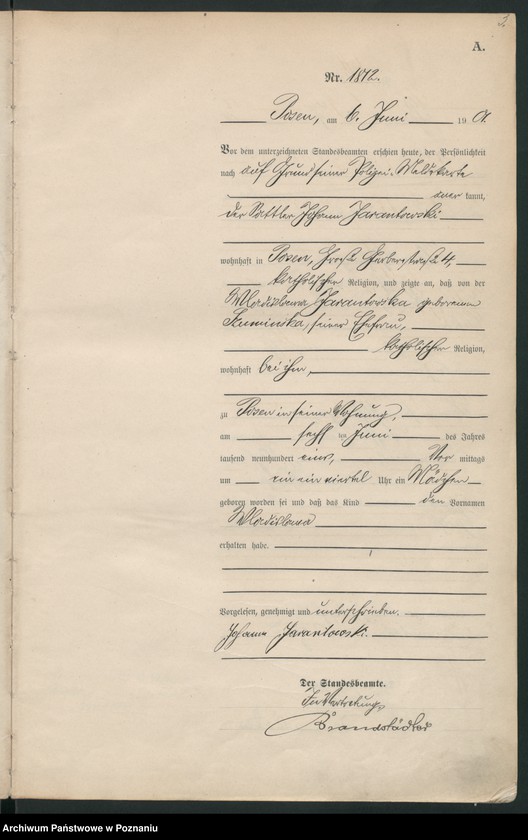 A.
Nr. 1812.
Posen, am 6. Juni 1901.
Vor dem unterzeichneten Standesbeamten erschien heute, der Persönlichkeit
nach auf Grund seiner Polizei-Meldekarte
aner kannt,
der Sattler Johann Jarantowski
wohnhaft in Posen, Große Gerberstraße 4,
katholischer Religion, und zeigte an, daß von der
Wladislawa Jarantowska geborenen
Szuminska, seiner Ehefrau,
katholischer Religion,
wohnhaft bei ihm,
zu Posen in seiner Wohnung,
am sechs ten Juni des Jahres
tausend neunhundert eins, Vor mittags
um ein ein viertel Uhr ein Mädchen
geboren worden sei und daß das Kind den Vornamen
Wladislawa
erhalten habe.
Vorgelesen, genehmigt und unterschrieben.
Johann Jarantowski.
Der Standesbeamte.
In Vertretung.
Brandstädter
Archiwum Państwowe w Poznaniu